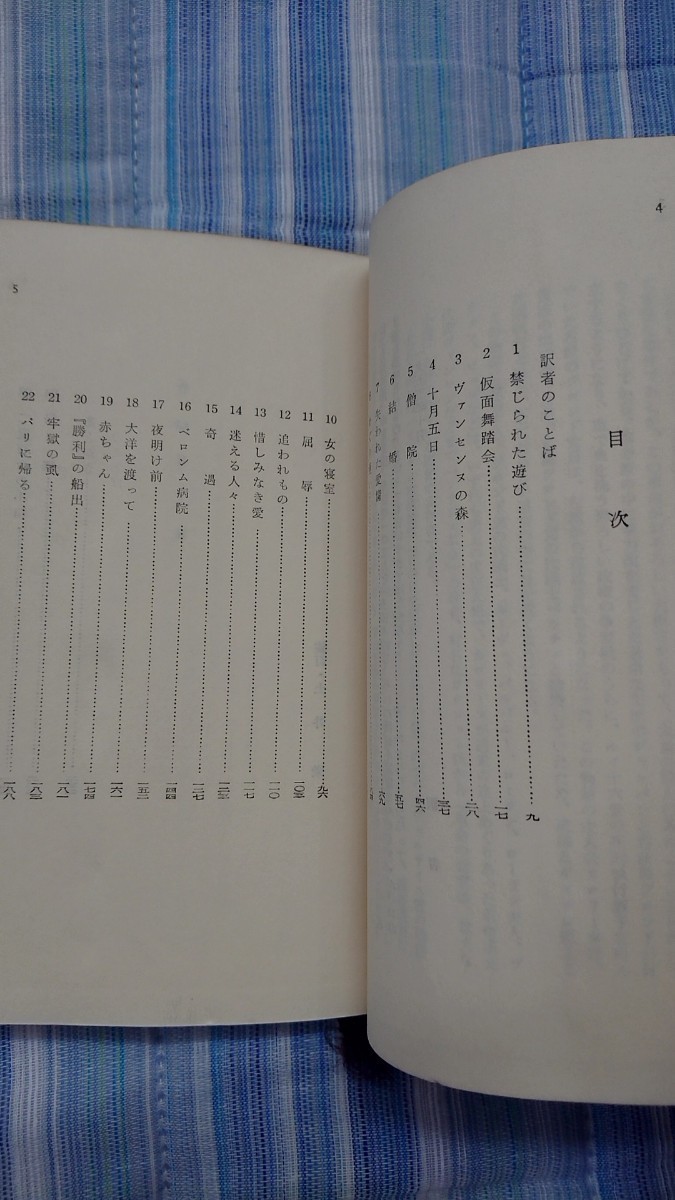 4
目次
訳者のことば
1 禁じられた遊び……九
2 仮面舞踏会……一七
3 ヴァンセンヌの森……二八
4 十月五日……三七
5 僧院……四六
6 結婚……五七
7 失われた愛……六九
5
10 女の寝室……九六
11 屈辱……一〇五
12 追われもの……一一〇
13 惜しみなき愛……一一七
14 迷える人々……一二三
15 奇遇……一二七
16 ベロンム病院……一四四
17 夜明け前……一五二
18 大洋を渡って……一六一
19 赤ちゃん……一七四
20 『勝利』の船出……一八一
21 牢獄の虱……一八三
22 パリに帰る……一八八